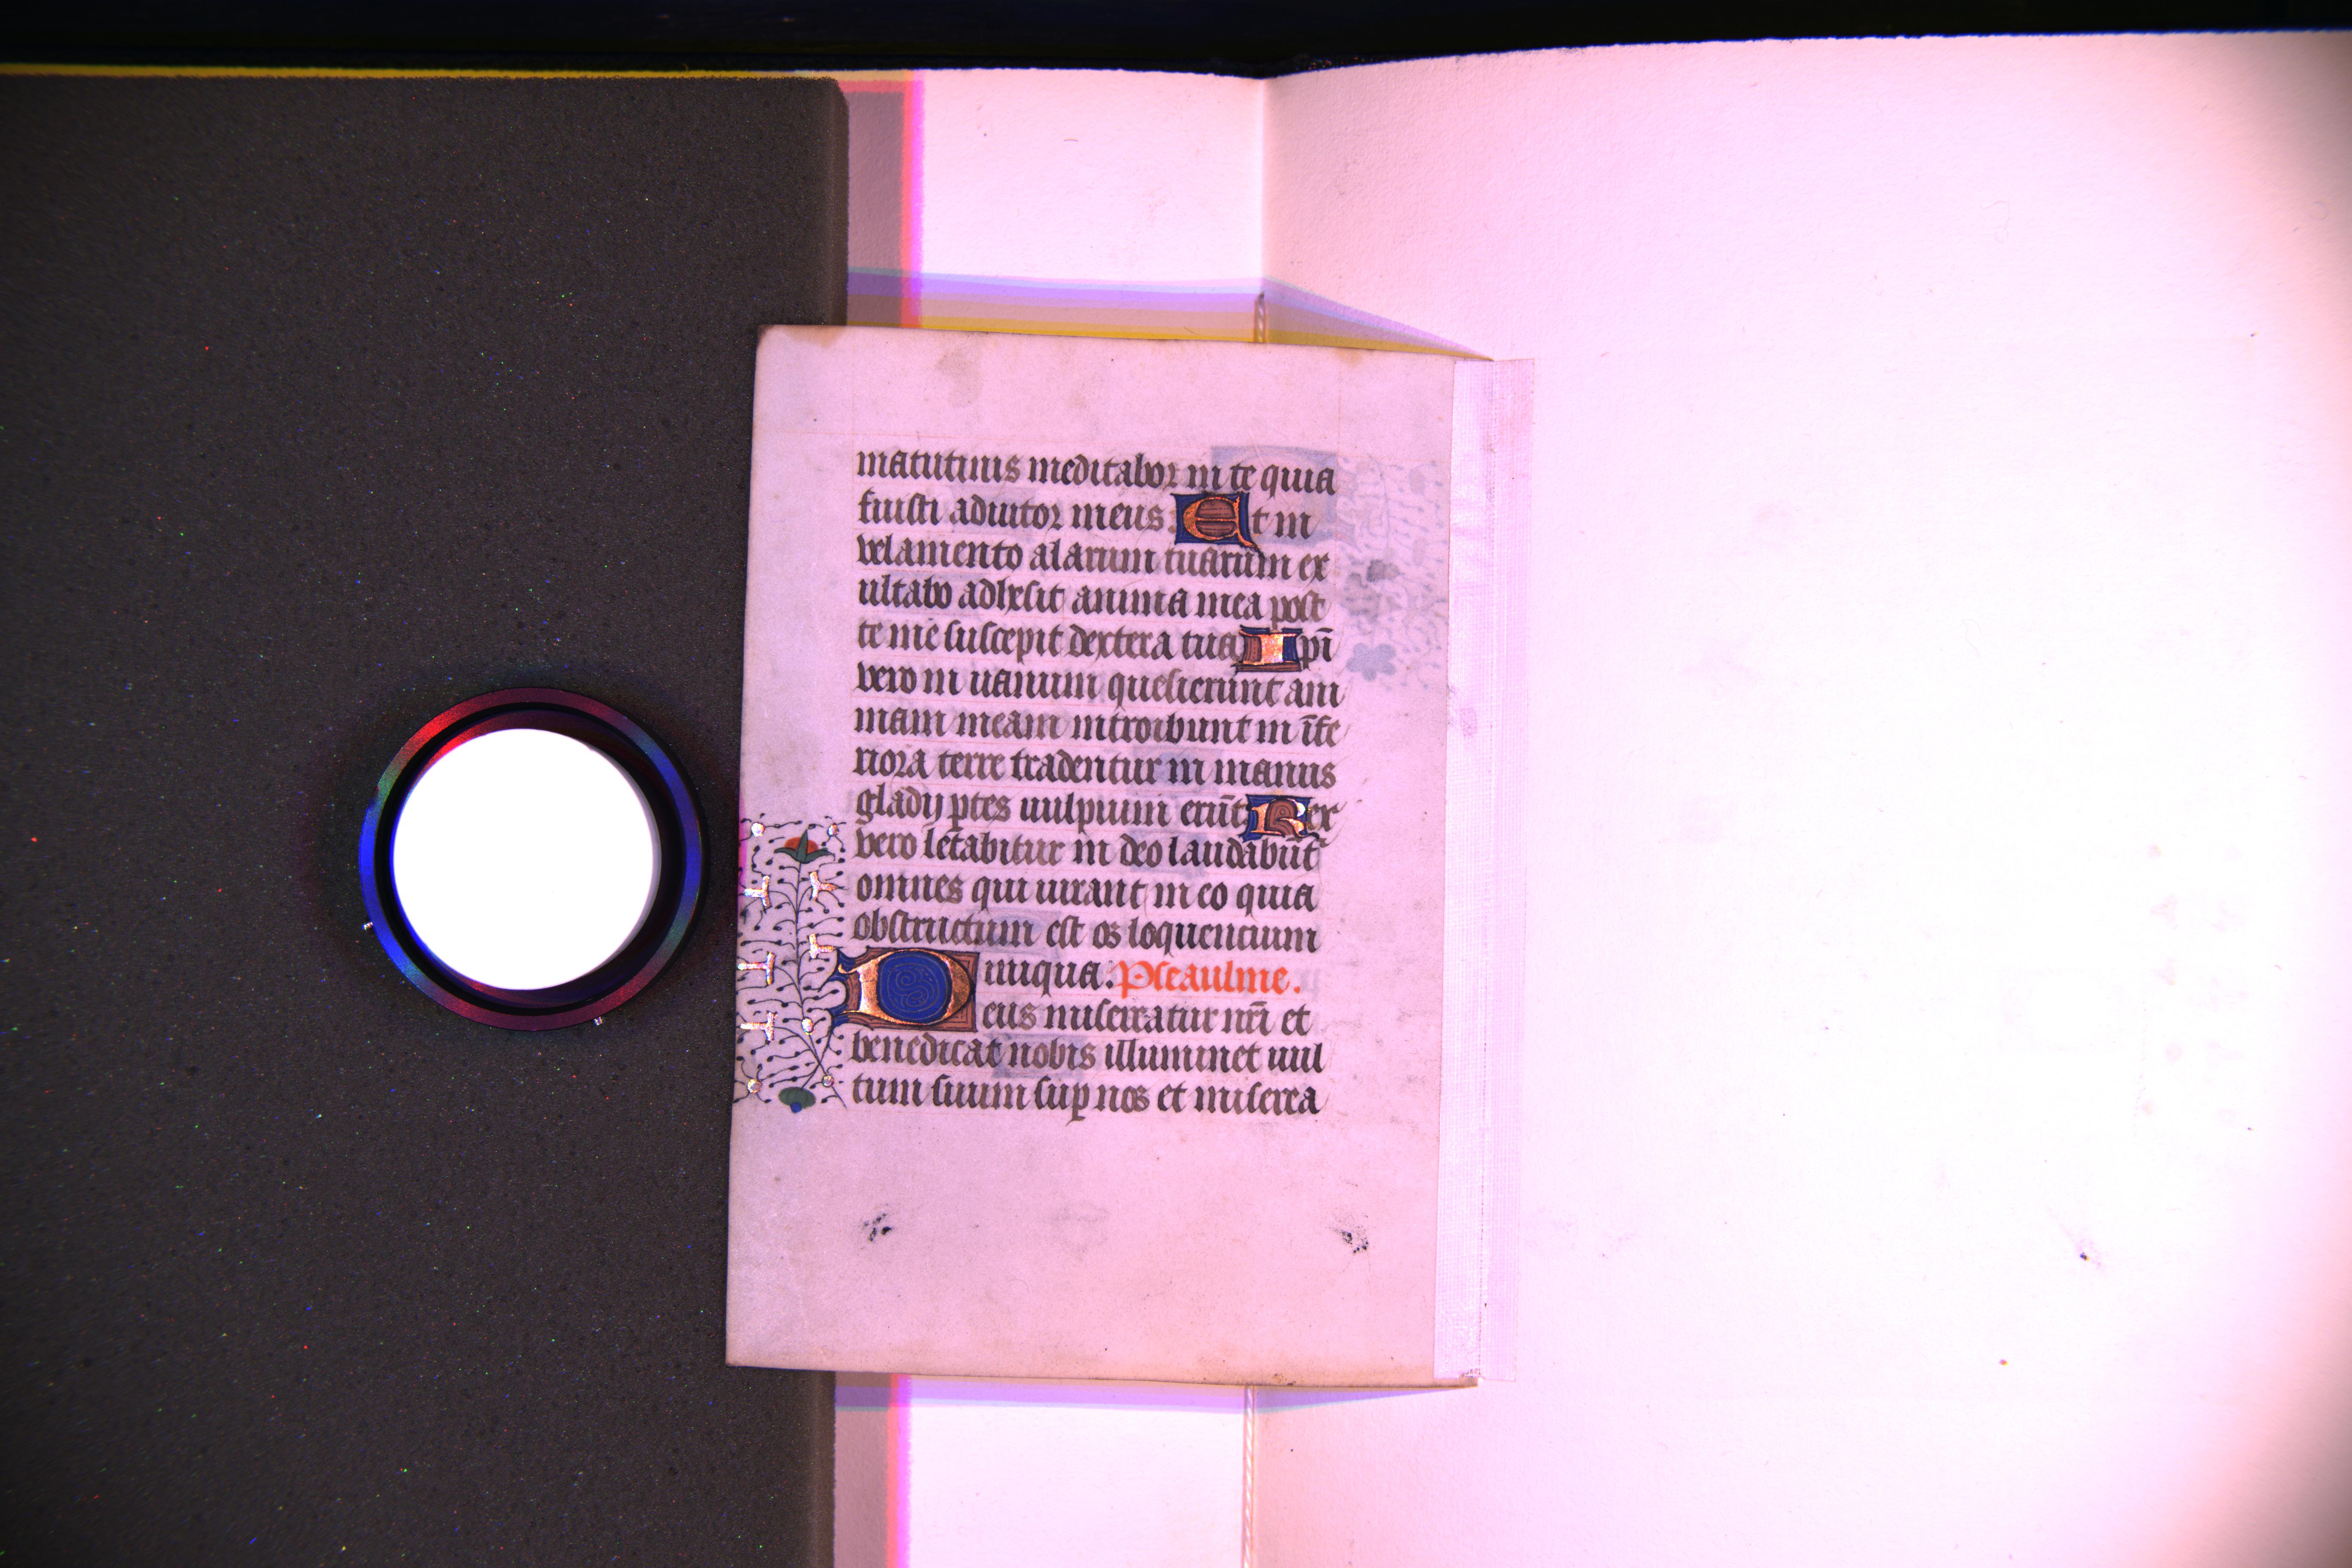 matutinis meditabor in te quia
fuisti adiutor meus: Et in
velamento alarum tuarum ex
ultabo adhesit anima mea post
te me suscepit dextera tua Ipi
vero in uanum quesierunt ani
mam meam introibunt in īfe
riora terre tradentur in manus
gladij ptes uulpium erūt Rex
vero letabitur in deo laudabūt
omnes qui iurant in eo quia
obstructum est os loquentium
iniqua. Pseaulme.
Deus miserratur nr̄i et
benedicat nobis illuminet uul
tum suum sup nos et miserea